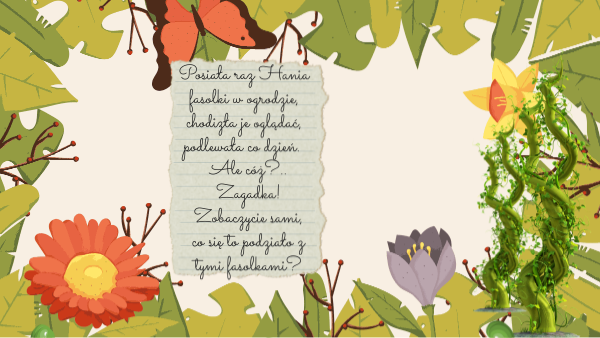 Posiała raz Hania
fasolki w ogrodzie,
chodizła je oglądać,
podlewała co dzień.
Ale cóż?..
Zagadka!
Zobaczycie sami,
co się to podziało z
tymi fasolkami?